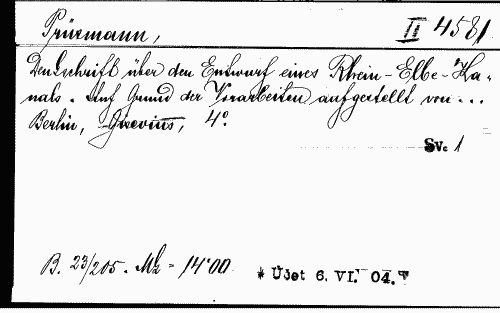 Prüsmann, II 4581
Denkschrift über den Entwurf eines Rhein-Elbe-Ka-
nals. Auf Grund der Vorarbeiten aufgestellt von ...
Berlin, Grevius, 4°.
Sv. 1
B. 23/205. Mk = 14.00 * Ujet 6. VI. 04. *